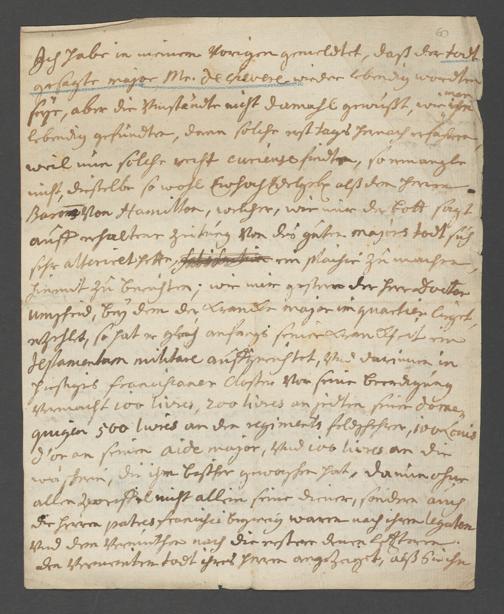 Ich habe in meinem Vorigen gemeldtet, daß der todt
gesagte major, Mr. de cheveré wieder lebendig worden
seye, aber die Umständte nicht damahl gewußt, wie man ihn
lebendig gefundten, denn solche erst tags hernach erfahren
weil nun solche recht curieuse findte, so ermangle
nicht, dieselbe so wohl Ewhochedelgeb. alß dem herrn
Baron Von Hamilton, welcher, wie mir der bott sagt
auff erhaltene Zeitung Von des guten majors todt sich
sehr alteriret hette, ein plaisir zu machen
hiemit zu berichten; wie mir gestern der herr Doctor
Umgheid, bey dem der Krancke major in quartier liget,
erzehlt, so hat er gleich anfangs seiner Kranckheit ein
Testamentum militare auffgerichtet, Und darinnen in
hiesiges franciscaner Closter Vor seine beerdigung
Vermacht 100 livres, 200 livres an jedten seiner dome-
quiquen 500 livres an den regiments feldscherer, 100 Louis
d'or an seinen aide major, Und 100 livres an die
wascherin, die ihm bißher gewaschen hat, darum ohne
allen Zweiffel nicht allein seine diener, sondern auch
die herren patres francisci begierig waren nach ihren legaten
Und dem Vermuthen nach die erstere denen letzteren
den Vermeinten todt ihres herrn angezeiget, alß Sie ihn